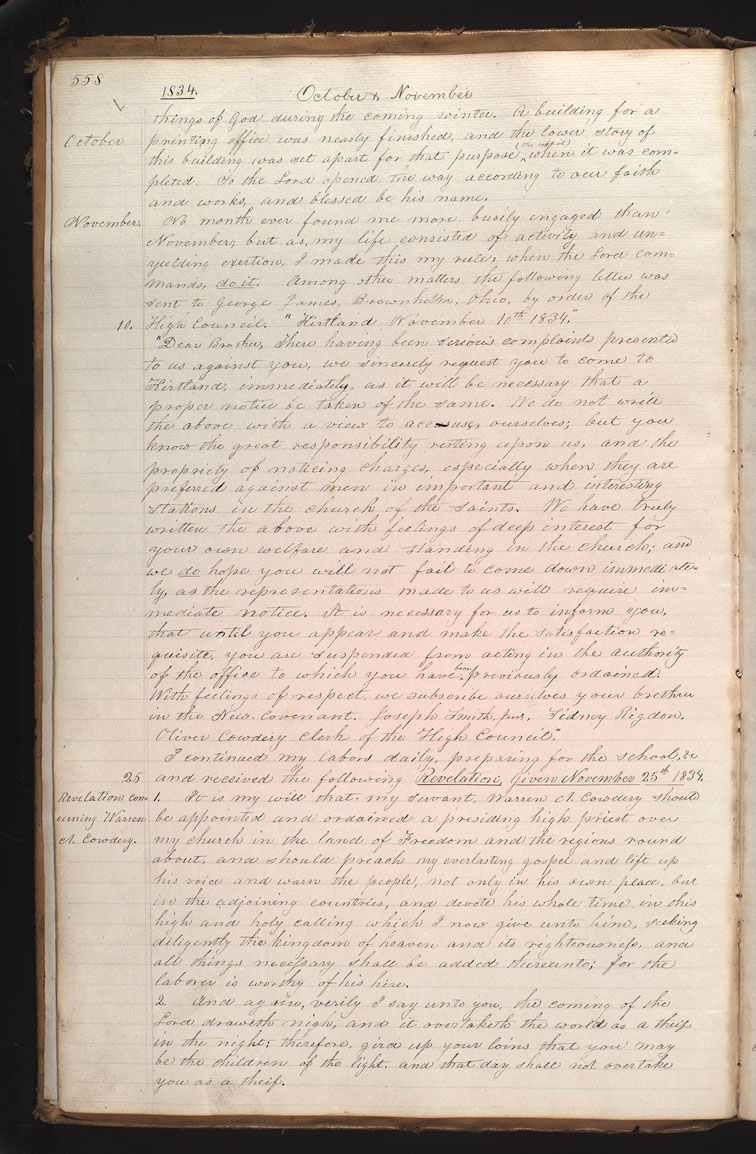 558
1834.
October & November
things of God during the coming winter. A building for a
October
printing office was nearly finished, and the lower story of
this building was set apart for that purpose, (the school) when it was com=
pleted. So the Lord opened the way according to our faith
and works, and blessed be his name.
November.
No month ever found me more busily engaged than
November; but as, my life consisted of activity and un=
yielding exertion, I made this my rule; when the Lord com=
mands, do it. Among other matters the following letter was
sent to George James, Brownhelm, Ohio, by order of the
10.
High Council. "Kirtland November 10th 1834."
"Dear Brother, There having been serious complaints presented
to us against you, we sincerely request you to come to
Kirtland, immediately, as it will be necessary that a
proper notice be taken of the same. We do not write
the above with a view to accuse, ourselves; but you
know the great responsibility resting upon us, and the
propriety of noticing charges, especially when they are
preferred against men in important and interesting
stations in the church of the saints. We have truly
written the above with feelings of deep interest for
your own welfare and standing in the church; and
we do hope you will not fail to come down immediate=
ly, as the representations made to us will require im=
mediate notice. It is necessary for us to inform you,
that until you appear and make the satisfaction re=
quisite, you are suspended from acting in the authority
of the office to which you have been previously ordained.
With feelings of respect, we subscribe ourselves your brethren
in the New Covenant. Joseph Smith, jun. Sidney Rigdon.
Oliver Cowdery Clerk of the "High Council."
I continued my labors daily, preparing for the school, &c
25
and received the following Revelation, Given November 25th 1834.
Revelation con=
cerning Warren
A. Cowdery.
1. It is my will that my servant, Warren A. Cowdery should
be appointed and ordained a presiding high priest over
my church in the land of Freedom and the regions round
about, and should preach my everlasting gospel and lift up
his voice and warn the people, not only in his own place, but
in the adjoining countries, and devote his whole time in this
high and holy calling which I now give unto him, seeking
diligently the kingdom of heaven and its righteousness, and
all things necessary shall be added thereunto; for the
laborer is worthy of his hire.
2. And again, verily I say unto you, the coming of the
Lord draweth nigh, and it overtaketh the world as a theif
in the night; therefore, gird up your loins that you may
be the children of the light, and that day shall not overtake
you as a theif.